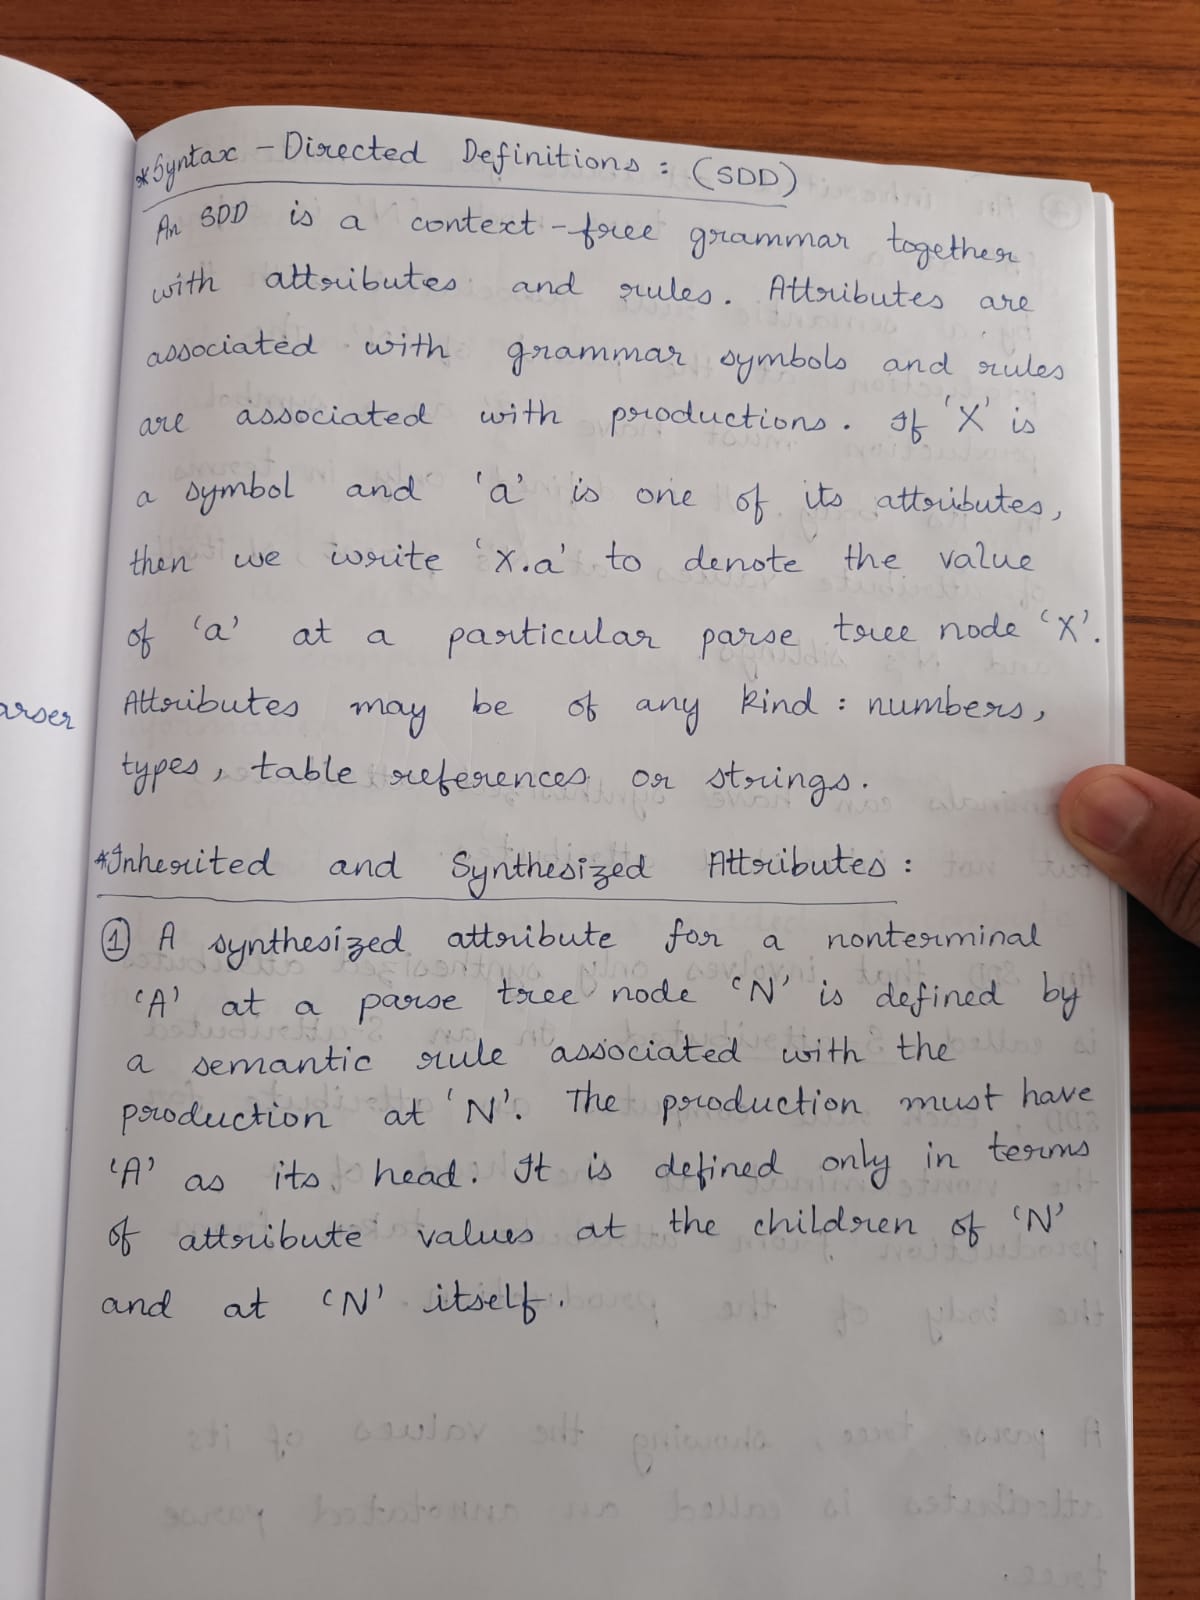 *Syntax - Directed Definitions : (SDD)
An SDD is a context-free grammar together
with attributes and rules. Attributes are
associated with grammar symbols and rules
are associated with productions. If 'X' is
a symbol and 'a' is one of its attributes,
then we write 'X.a' to denote the value
of 'a' at a particular parse tree node 'X'.
Attributes may be of any kind : numbers,
types, table references or strings.
*Inherited and Synthesized Attributes :
① A synthesized attribute for a nonterminal
'A' at a parse tree node 'N' is defined by
a semantic rule associated with the
production at 'N'. The production must have
'A' as its head. It is defined only in terms
of attribute values at the children of 'N'
and at 'N' itself.
arser